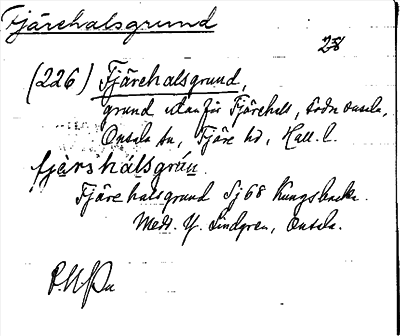 Fjärehalsgrund
28
(226) Fjärehalsgrund,
grund utanför Fjärehals, Södra Onsala,
Onsala sn, Fjäre hd, Hall. l.
fjärshálsgrún.
Fjäre halsgrund Sj 68 Kungsbacka.
Medd. Y. Lindgren, Onsala.